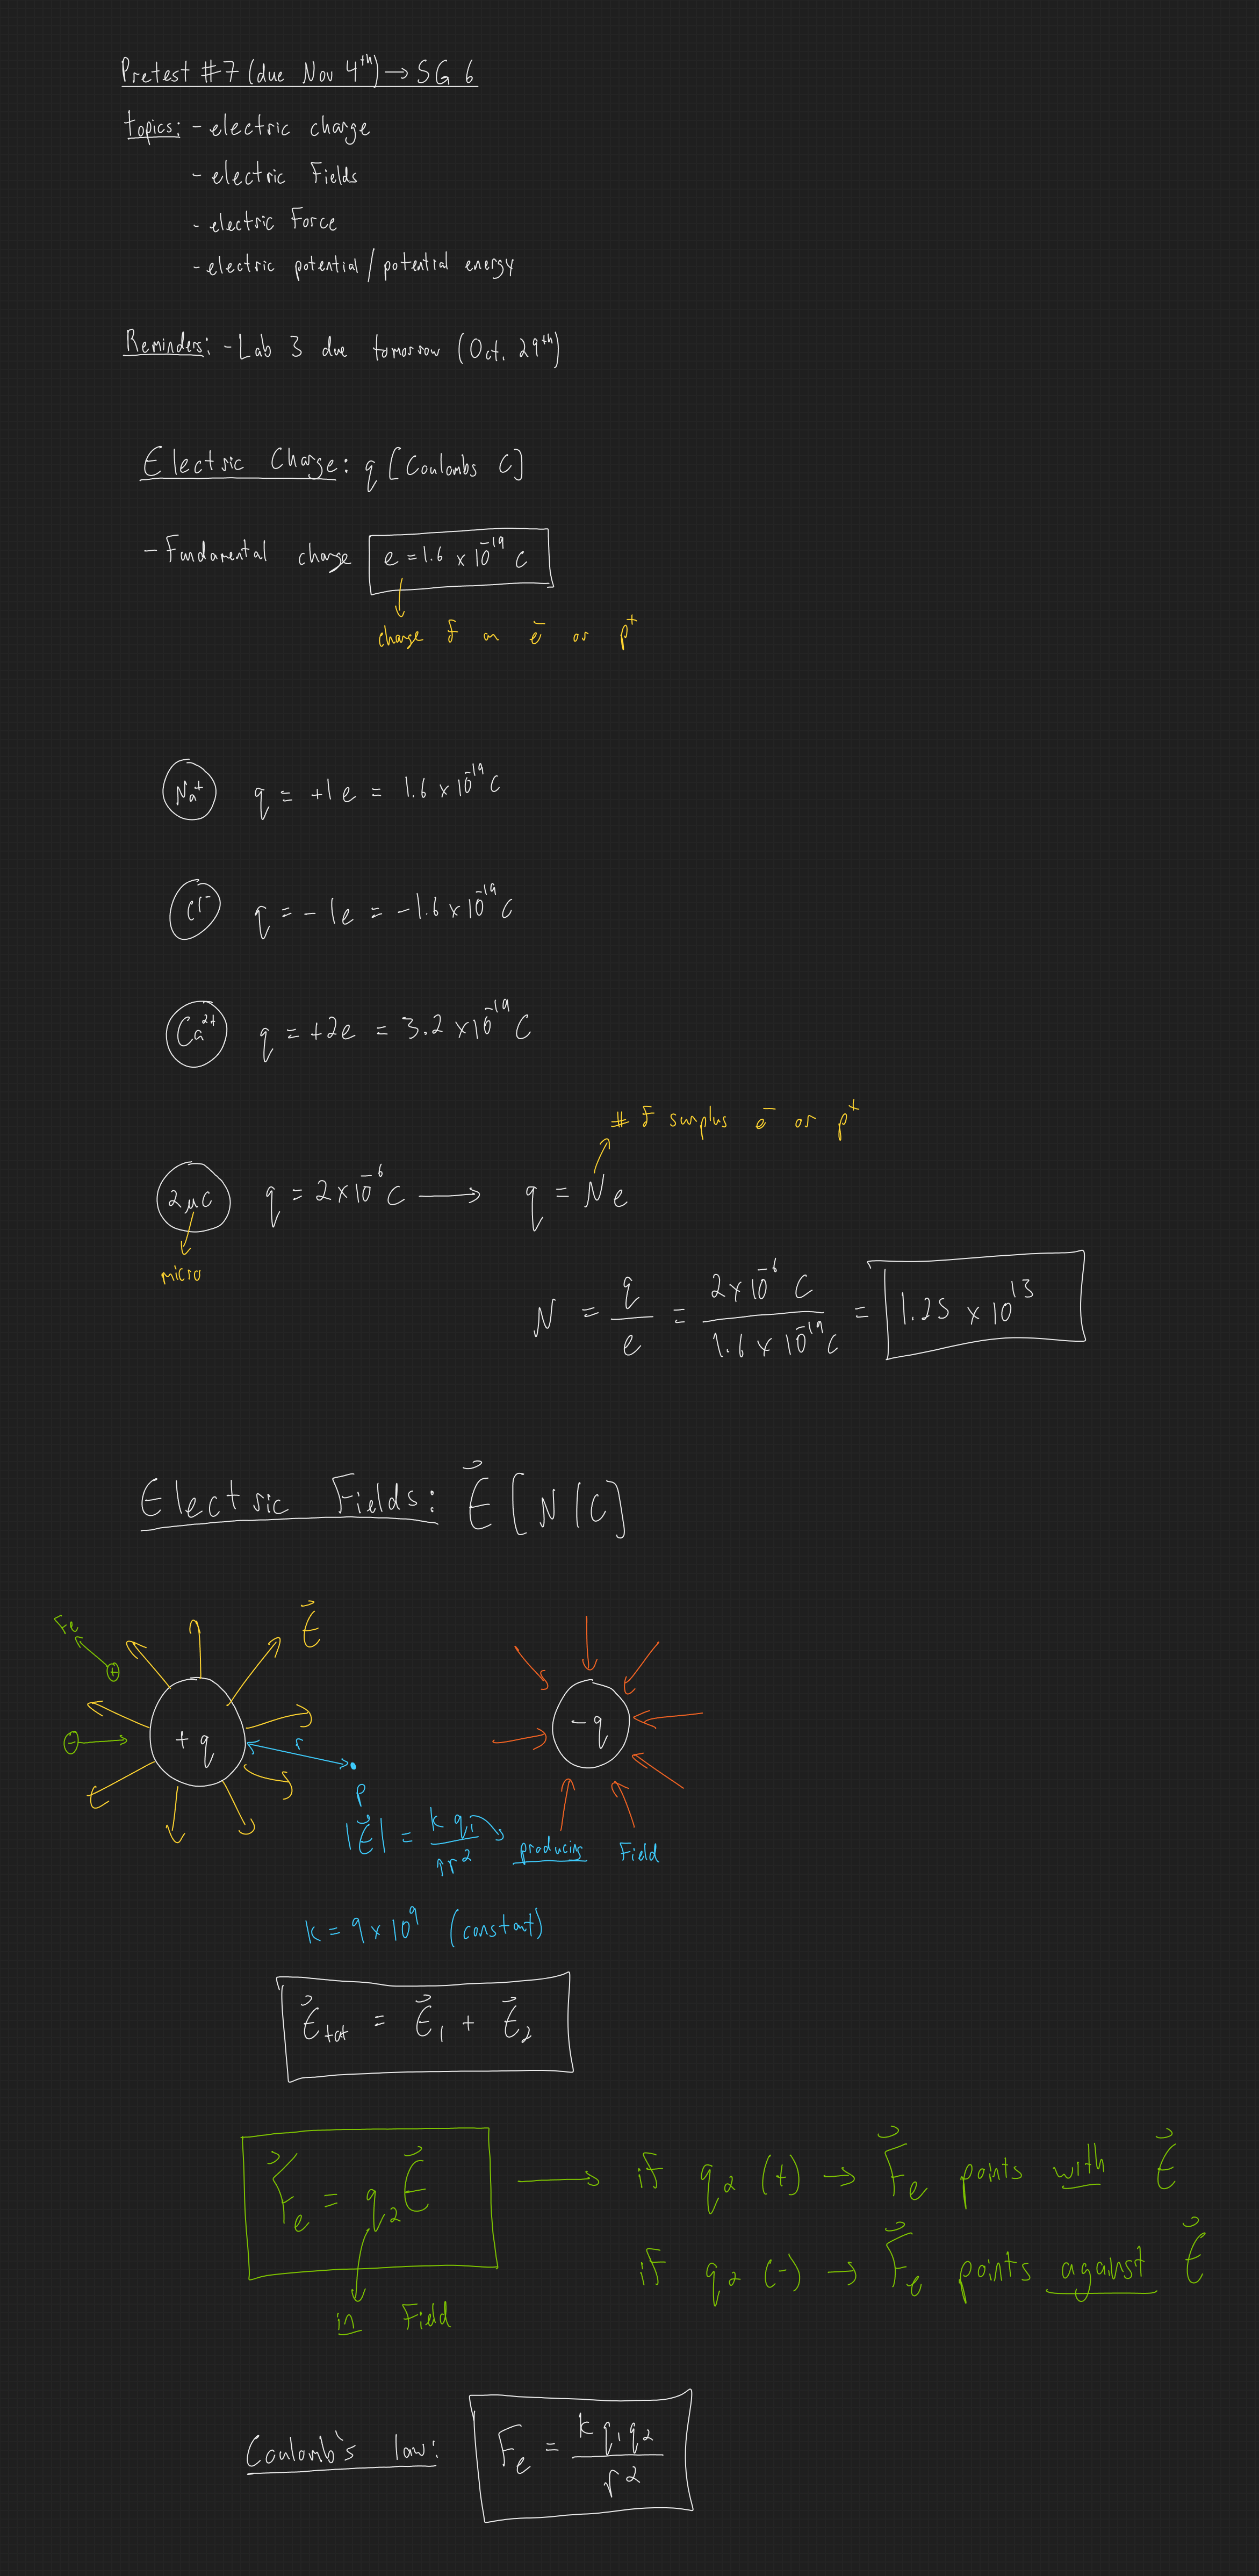 Pretest #7 (due Nov 4th) → SG 6
topics: - electric charge
- electric Fields
- electric Force
- electric potential / potential energy
Reminders: - Lab 3 due tomorrow (Oct. 29th)
Electric Charge: q [Coulombs C]
- Fundamental charge e = 1.6 × 10⁻¹⁹ C
charge of an e⁻ or p⁺
Na⁺ q = +1e = 1.6 × 10⁻¹⁹ C
Cl⁻ q = -1e = -1.6 × 10⁻¹⁹ C
Ca²⁺ q = +2e = 3.2 × 10⁻¹⁹ C
# of surplus e⁻ or p⁺
2μC q = 2 × 10⁻⁶ C → q = Ne
micro
N = q/e = 2 × 10⁻⁶ C / 1.6 × 10⁻¹⁹ C = 1.25 × 10¹³
Electric Fields: E⃗ [N/C]
Fe + E⃗
- +q r -q
p
|E⃗| = k q₁ / r² → producing Field
k = 9 × 10⁹ (constant)
E⃗tot = E⃗₁ + E⃗₂
F⃗e = q₂E⃗ → if q₂ (+) → F⃗e points with E⃗
if q₂ (-) → F⃗e points against E⃗
in Field
Coulomb's law: Fe = k q₁q₂ / r²